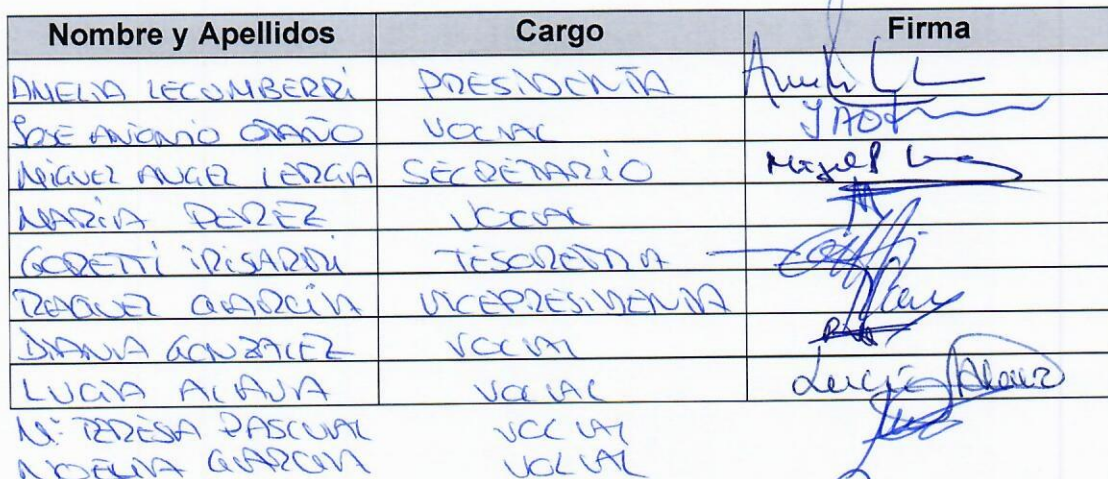 Nombre y Apellidos Cargo Firma
AMELIA LECUMBERRi PRESIDENTA
JOSE ANTONIO OTAÑO VOCAL JAOt
MIGUEL ANGEL LERGA SECRETARIO Miguel
MARIA PEREZ VOCAL
GORETTI IRISARRI TESORERA
RAQUEL GARCIA VICEPRESIDENTA
DIANA GONZALEZ VOCAL
LUCIA ALAVA VOCAL Lucía Alava
Mª TERESA PASCUAL VOCAL
NOELIA GARCIA VOCAL